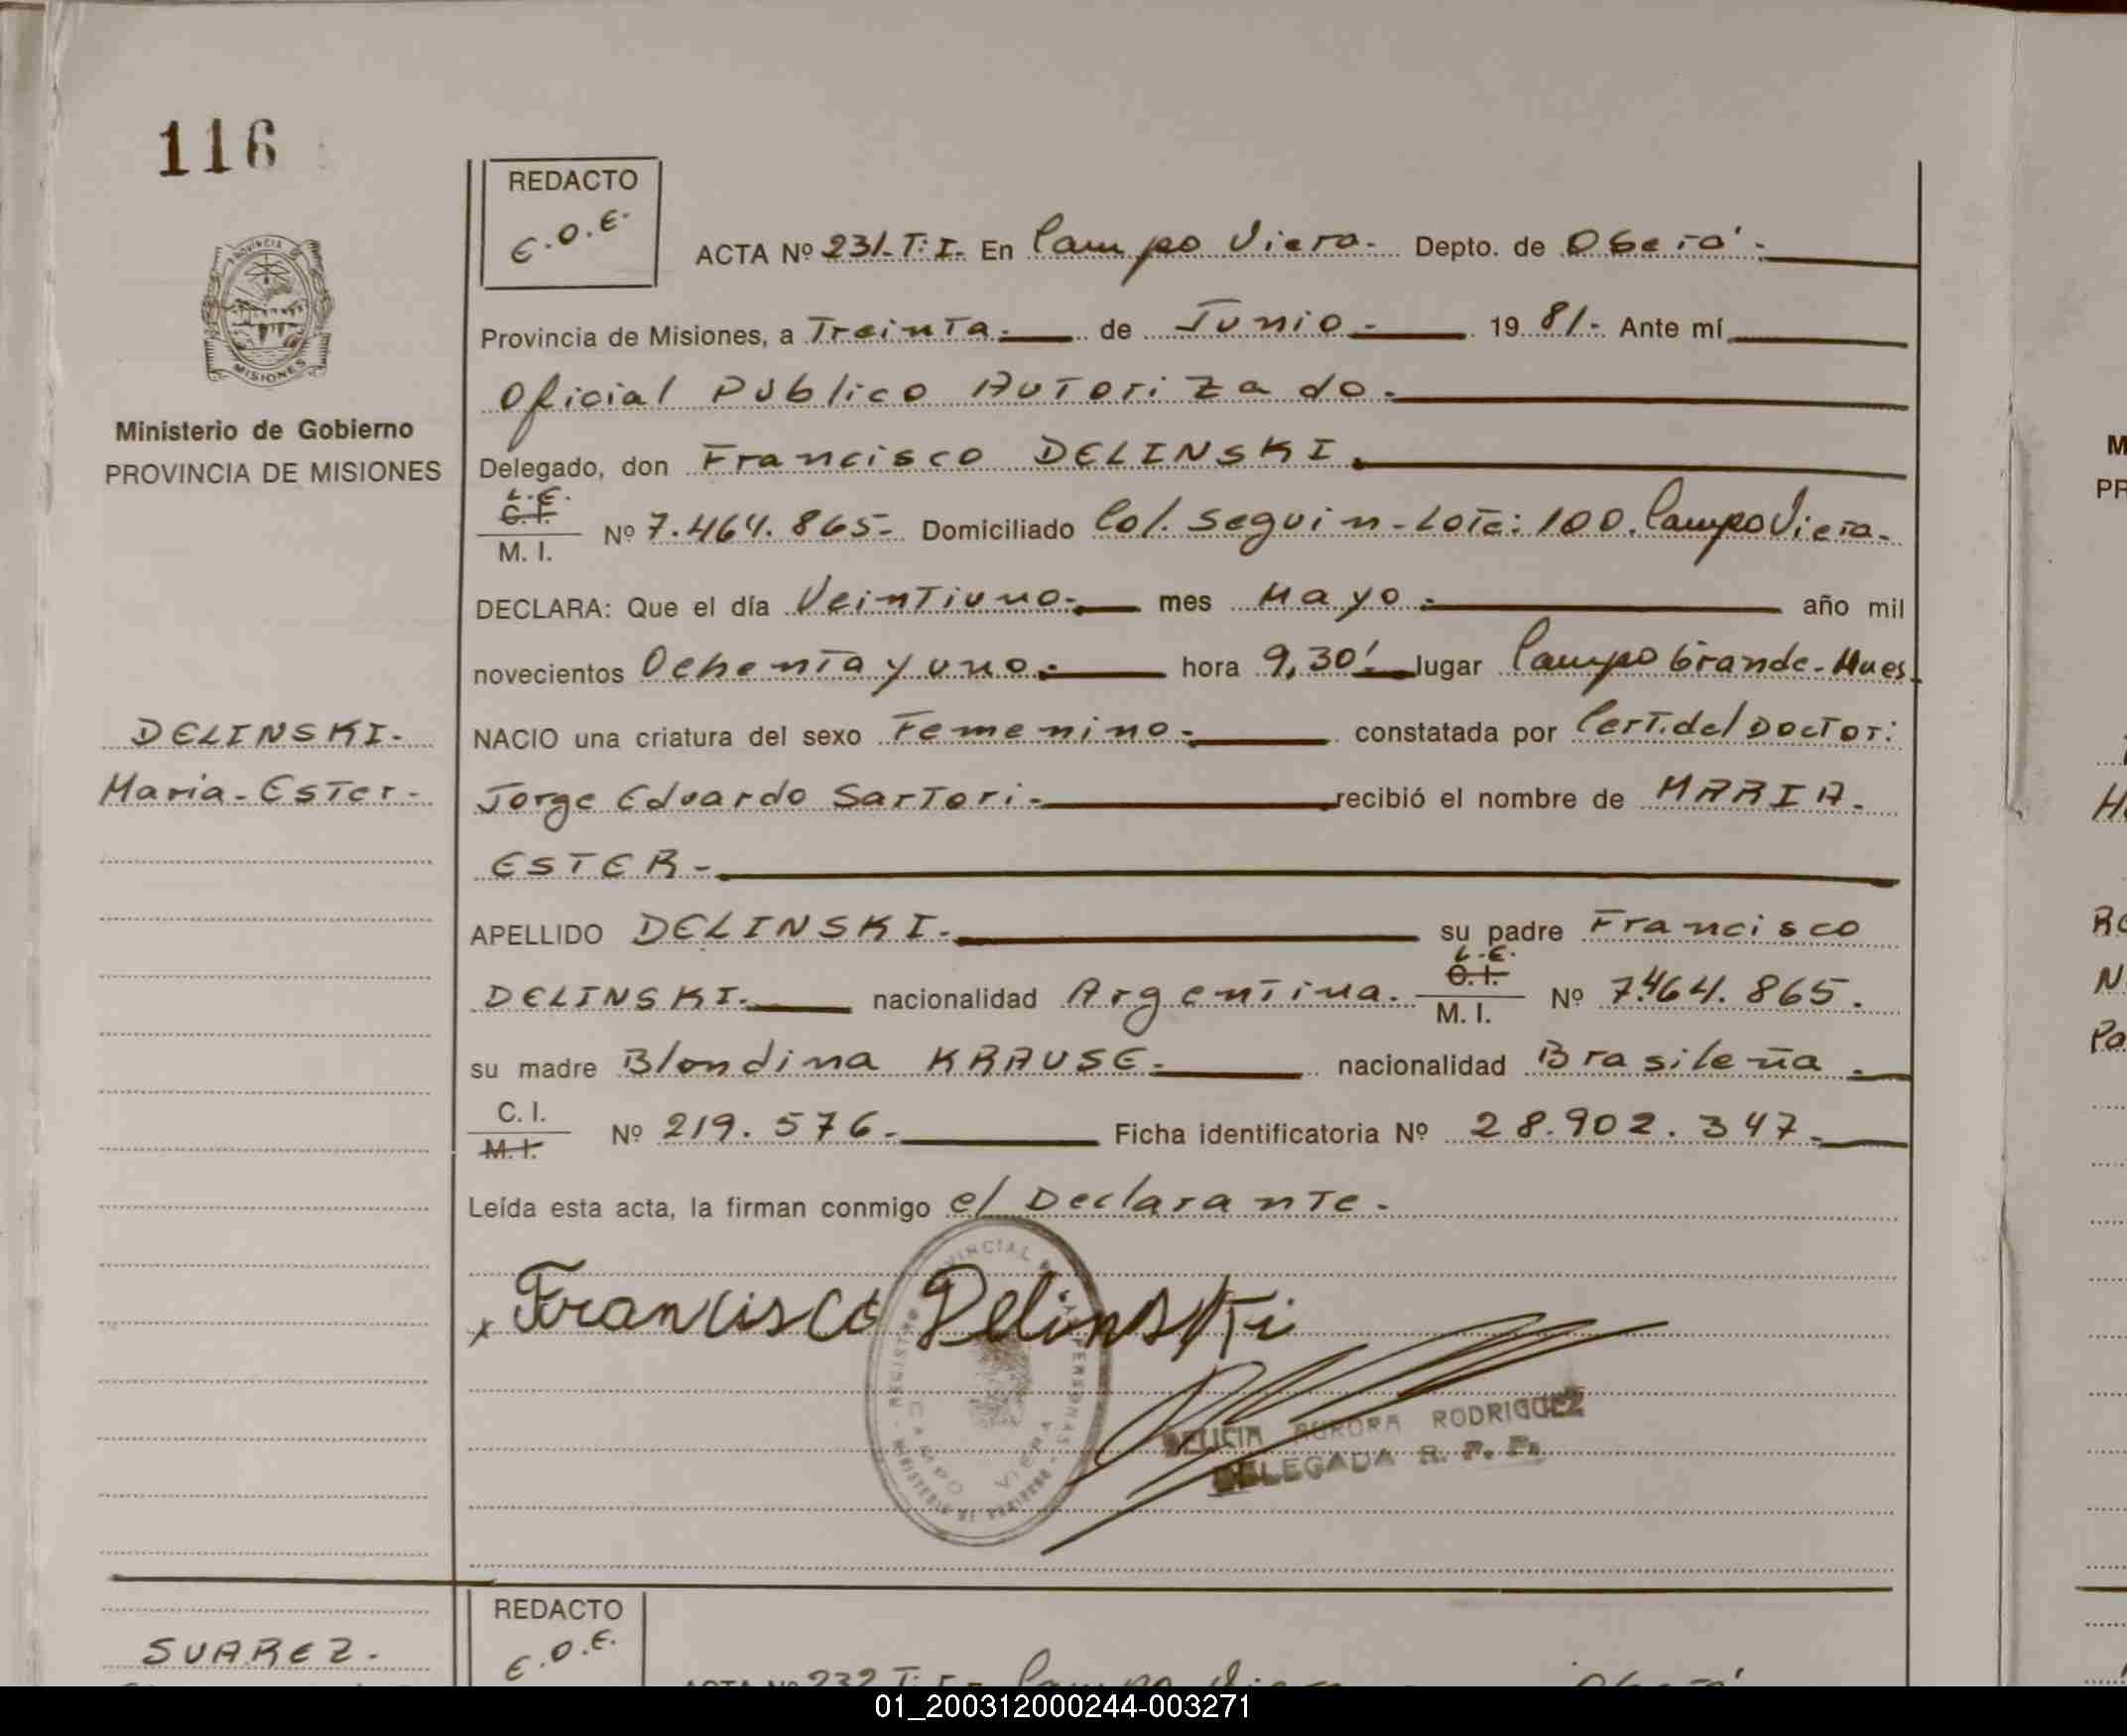 116
REDACTO
E.O.E.
ACTA Nº 231.T:I. En Campo Viera.- Depto. de Oberá.-
Provincia de Misiones, a Treinta.- de Junio.- 1981.- Ante mí
Oficial Publico Autorizado.-
Ministerio de Gobierno
PROVINCIA DE MISIONES
Delegado, don Francisco DELINSKI.
L.E.
C.I.
M. I. Nº 7.464.865.- Domiciliado Col. Seguin-Lote: 100. Campo Viera.-
DECLARA: Que el día Veintiuno.- mes Mayo.- año mil
novecientos Ochenta y uno.- hora 9,30'. lugar Campo Grande-Mnes.
DELINSKI.-
Maria-Ester.-
NACIO una criatura del sexo Femenino.- constatada por Cert. del Doctor:
Jorge Eduardo Sartori.- recibió el nombre de MARIA.-
ESTER.-
APELLIDO DELINSKI.- su padre Francisco
DELINSKI.- nacionalidad Argentina.
L.E.
C.I.
M. I. Nº 7.464.865.
su madre Blondina KRAUSE.- nacionalidad Brasileña.-
C. I.
M. I. Nº 219.576.- Ficha identificatoria Nº 28.902.347.-
Leída esta acta, la firman conmigo el Declarante.-
Francisco Delinski
DELICIA AURORA RODRIGUEZ
DELEGADA R. P. P.
CAMPO VIERA
REDACTO
E.O.E.
SUAREZ.-
ACTA Nº 232 T:I. Campo Viera Oberá
01_200312000244-003271